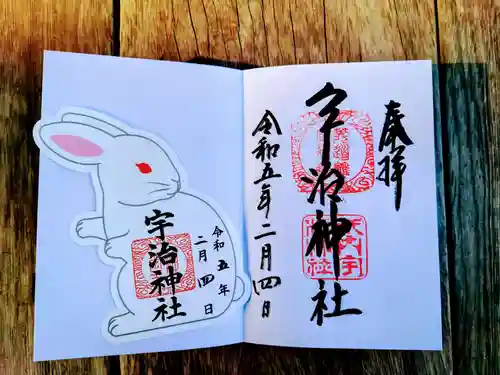 奉拝
宇治神社
令和五年二月四日
宇治神社
令和五年
二月四日